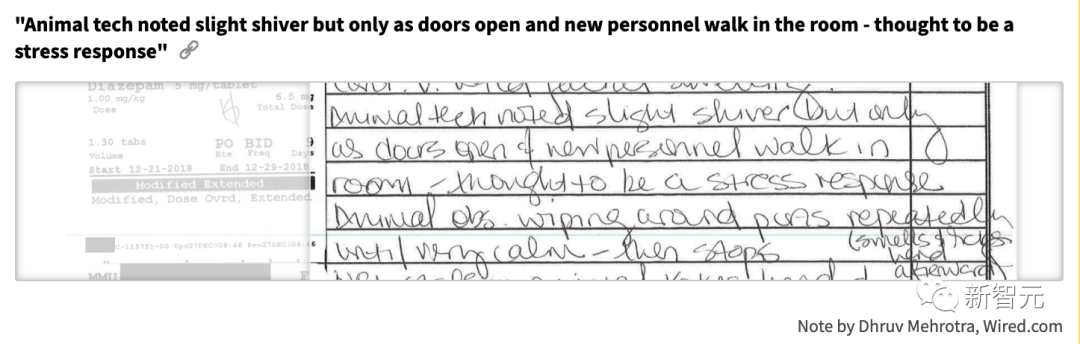 "Animal tech noted slight shiver but only as doors open and new personnel walk in the room - thought to be a
stress response"
Diazepam 5 mg/tablet
1.00 mg/kg 6.5 mg
Dose Total Dose
1.30 tabs PO BID 9
Volume Rte Freq Days
Start 12-21-2018 End 12-29-2018
Modified Extended
Modified, Dose Ovrd, Extended
Animal tech noted slight shiver (but only
as doors open & new personnel walk in
room - thought to be a stress response
Animal obs. wiping around puras repeatedly
until very calm - then stops
(smells & licks
hand
afterward
新智元
Note by Dhruv Mehrotra, Wired.com